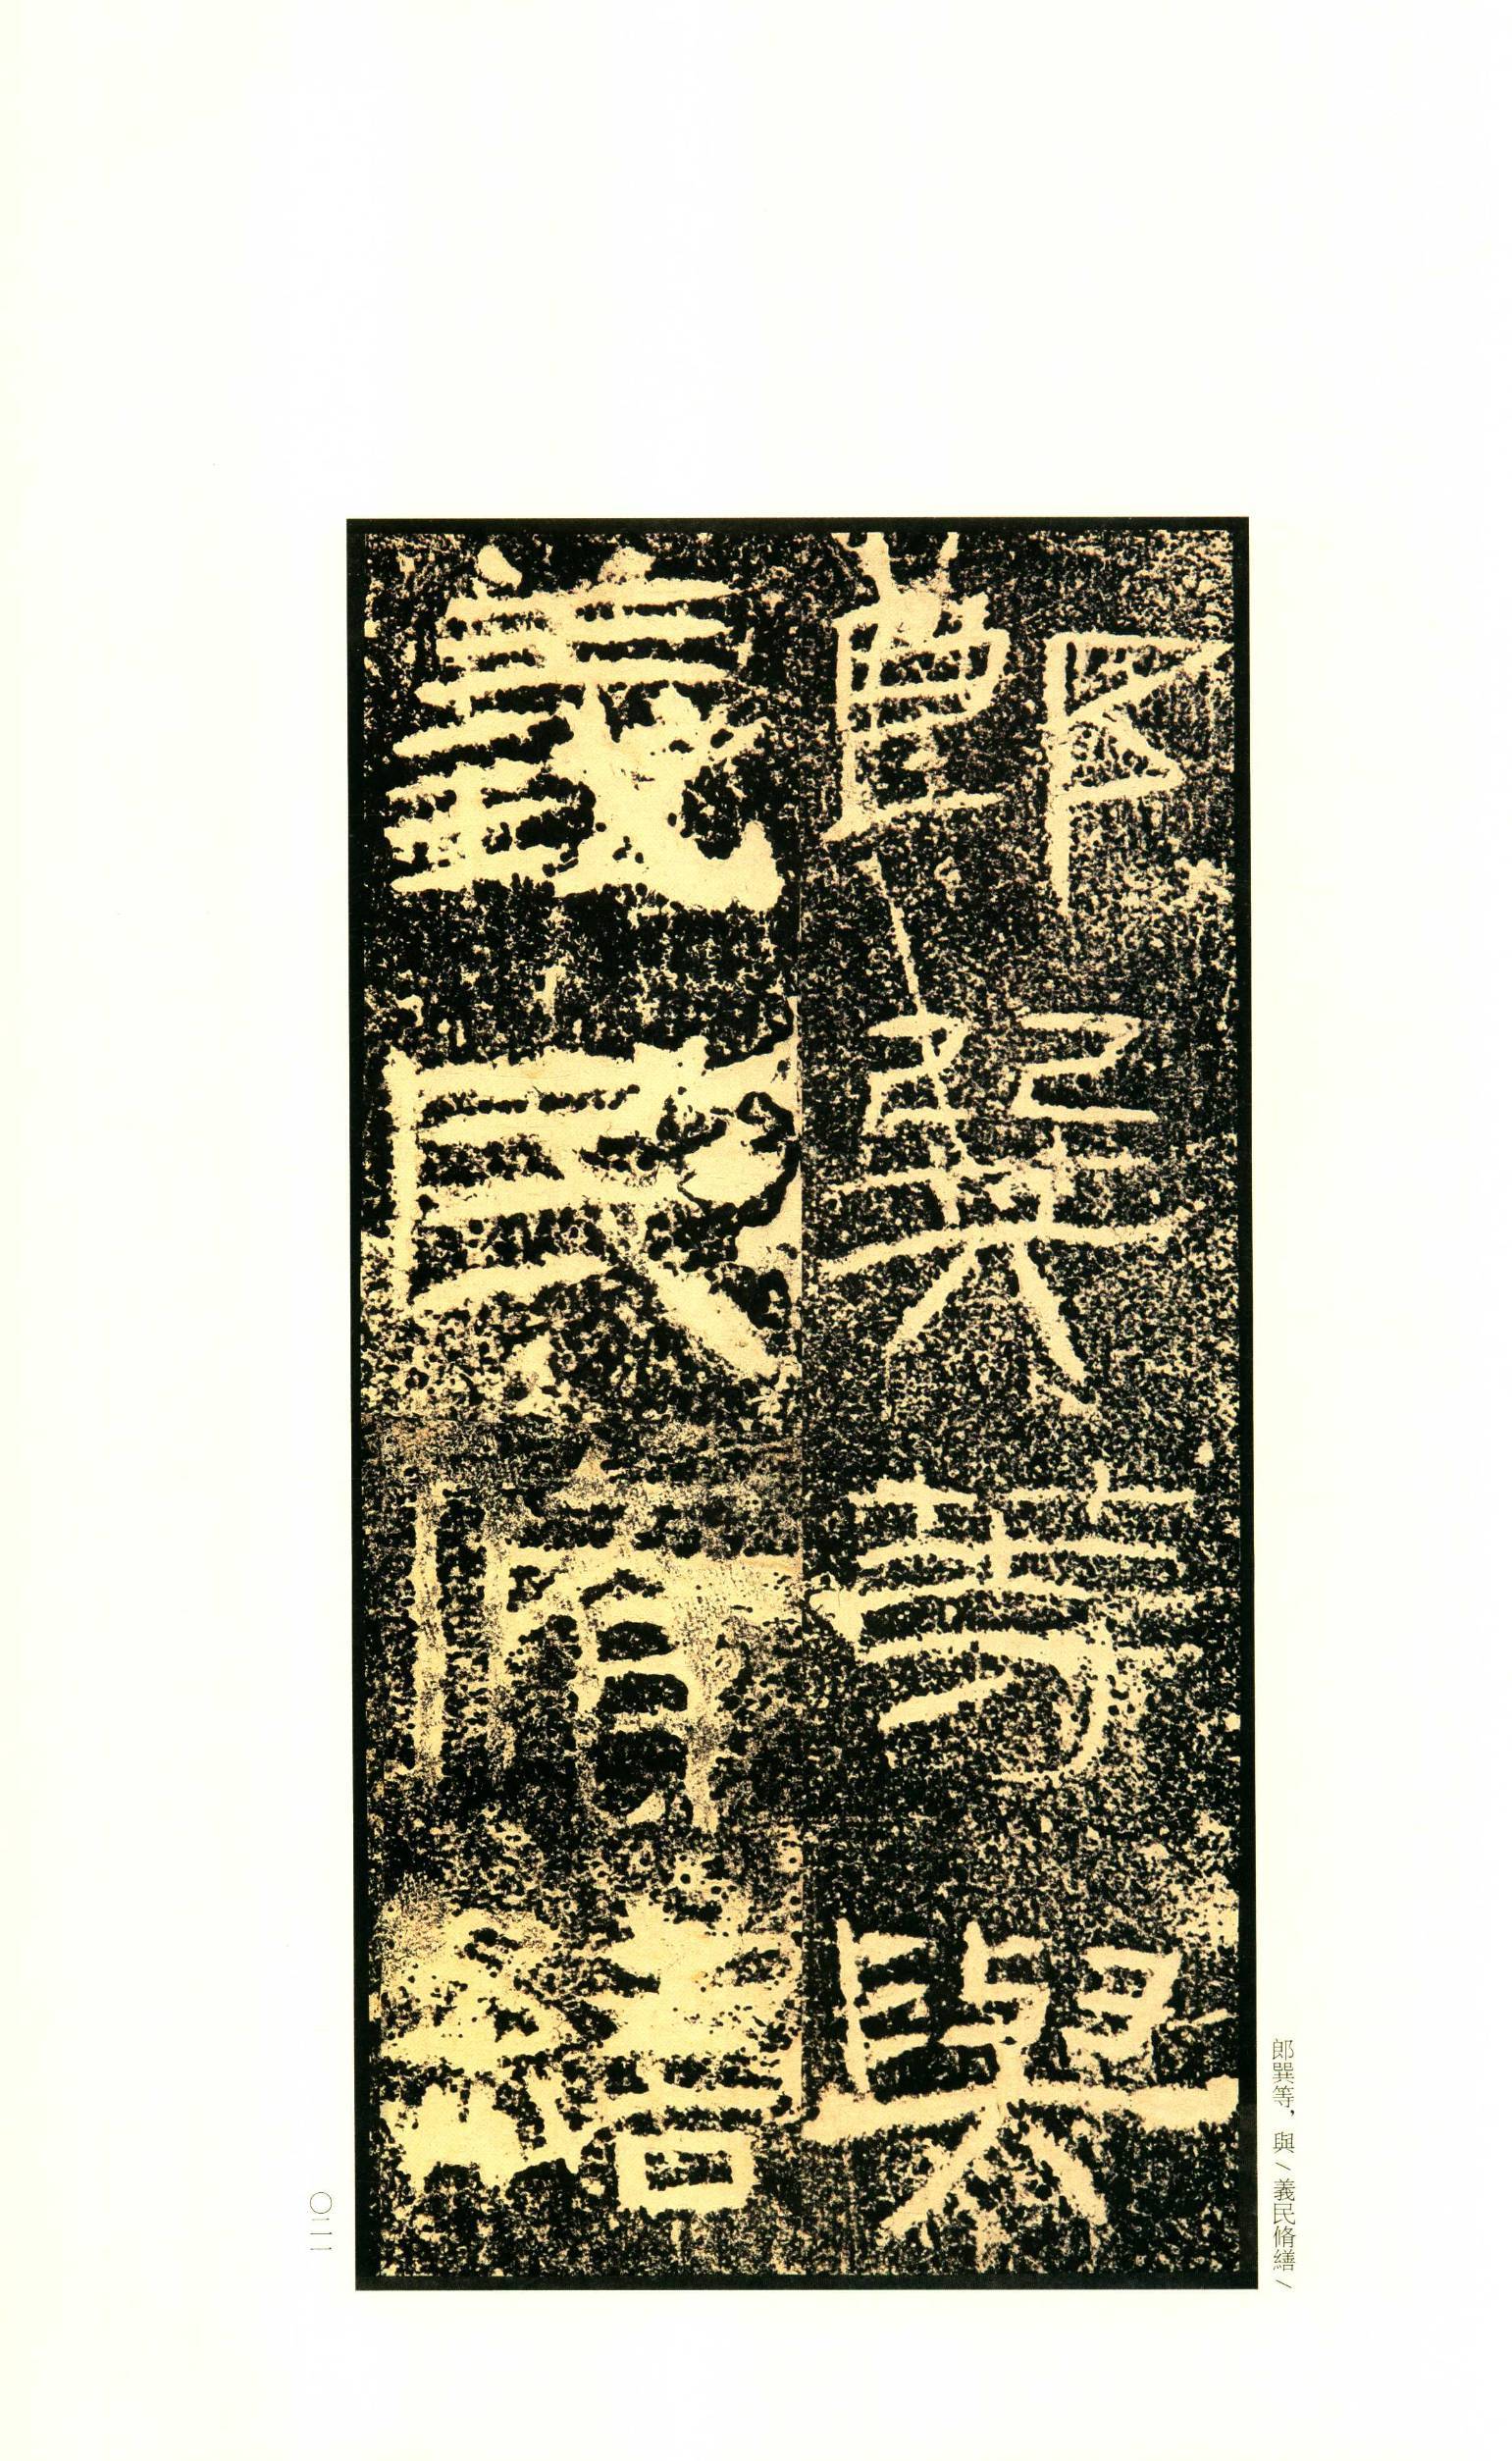 郎巽等與
義民脩繕
郎巽等，與／義民脩繕／
〇二一